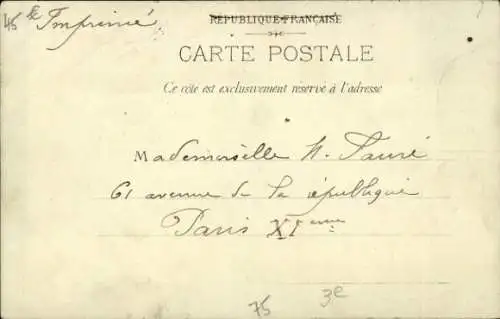 45 e Imprimé
RÉPUBLIQUE FRANÇAISE
CARTE POSTALE
Ce côté est exclusivement réservé à l'adresse
Mademoiselle H. Fauré
61 avenue de la république
Paris XIeme
75 3e